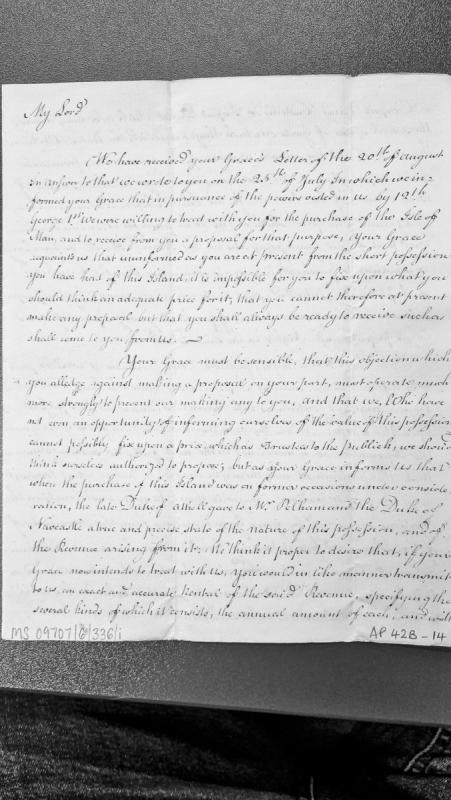 My Lord
We have received your Grace's Letter of the 20th of August
in answer to that we wrote to you on the 25th of July In which we in-
formed your Grace that in pursuance of the powers vested in us by 12th
George 1st We were willing to treat with you for the purchase of the Isle of
Man, and to receive from you a proposal for that purpose, Your Grace
acquaints us that uninformed as you are at present from the short possession
you have had of this Island, it is impossible for you to fix upon what you
should think an adequate price for it, that you cannot therefore at present
make any proposal but that you shall always be ready to receive such as
shall come to you from us. —
Your Grace must be sensible, that this objection which
you alledge against making a proposal on your part, must operate much
more strongly to prevent our making any to you, and that we, Who have
not even an opportunity of informing ourselves of the value of this possession
cannot possibly fix upon a price, which as Trustees to the Publick, we should
think ourselves authorized to propose; but as your Grace informs us that
when the purchase of this Island was on former occasions under conside-
ration, the late Duke of Atholl gave to Mr Pelham and the Duke of
Newcastle a true and precise state of the nature of this possession, and of
the Revenue arising from it: We think it proper to desire that, if your
Grace now intends to treat with Us, you would in like manner transmit
to us, an exact and accurate Rental of the said Revenue, specifying the
several kinds of which it consists, the annual amount of each, and will
MS 09707/6/336/i
AP 42B - 14